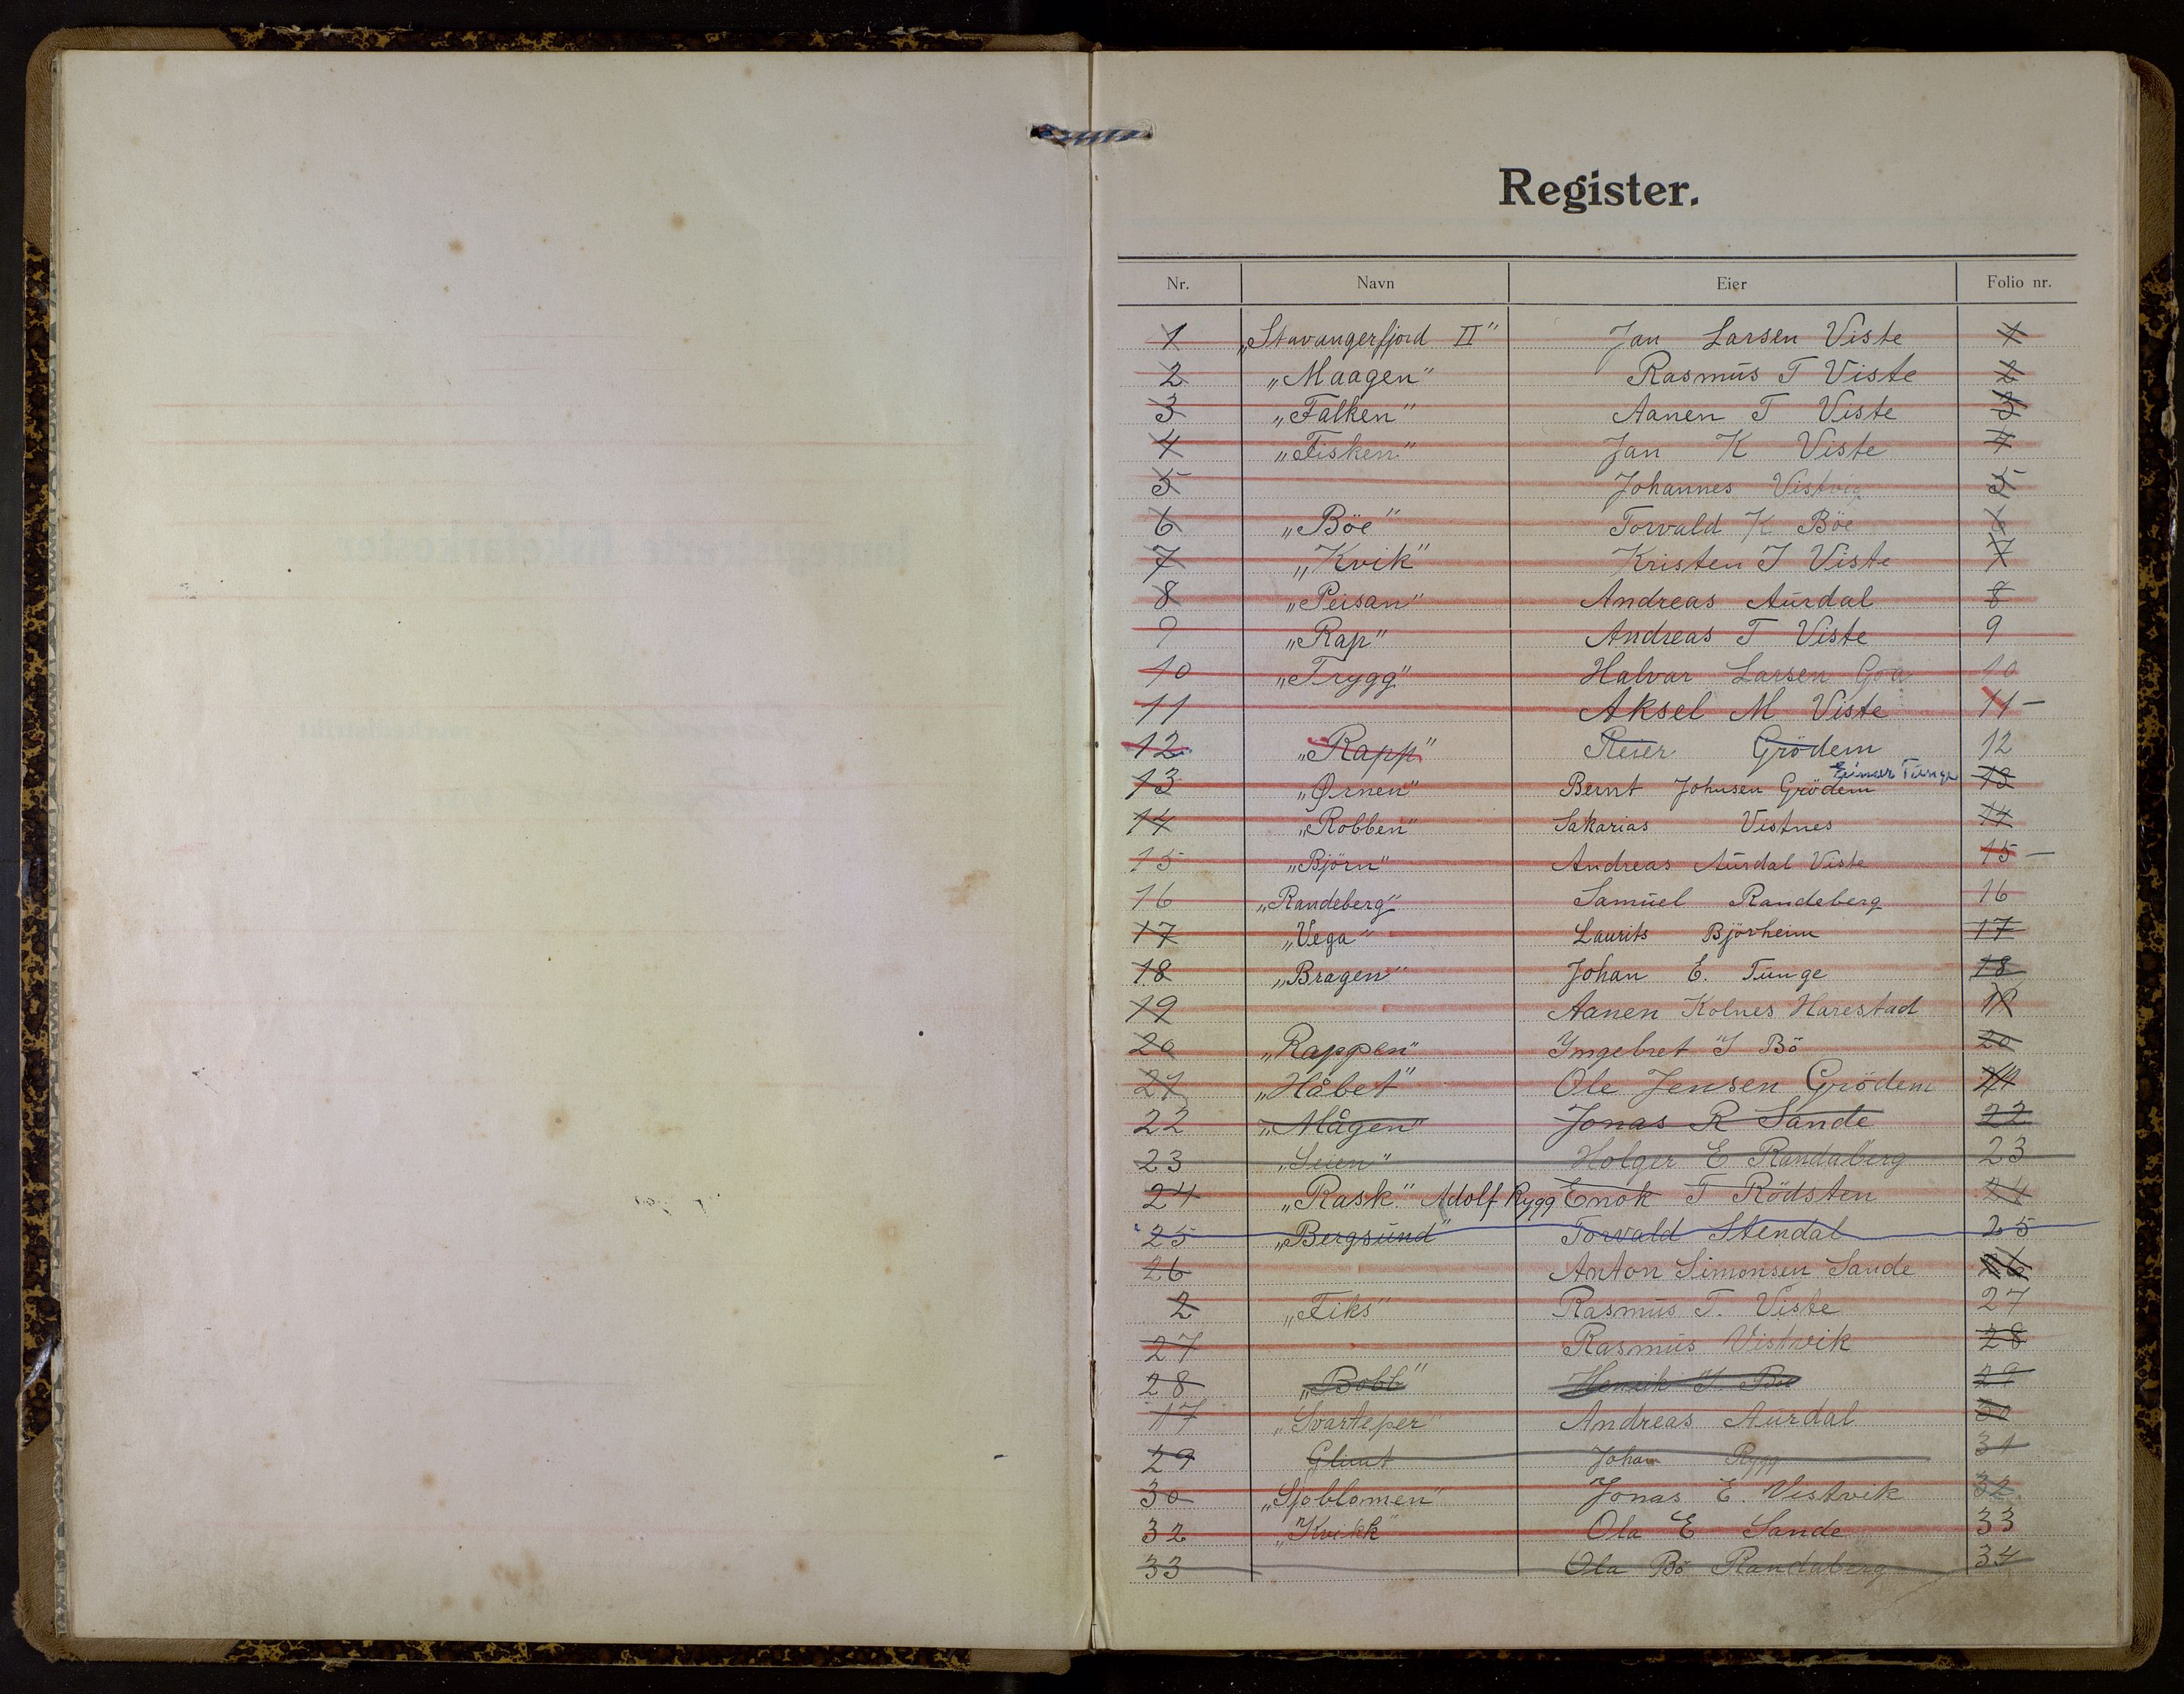 Register.
Nr. Navn Eier Folio nr.
1 „Stavangerfjord II" Jan Larsen Viste 1
2 „Maagen" Rasmus T Viste 2
3 „Falken" Aanen T Viste 3
4 „Fisken" Jan K Viste 4
5 Johannes Vistvig 5
6 „Böe" Torvald K Böe 6
7 „Kvik" Kristen J Viste 7
8 „Peisan" Andreas Aurdal 8
9 „Rap" Andreas T Viste 9
10 „Trygg" Halvar Larsen Goa 10
11 Aksel M Viste 11 –
12 „Rapp" Reier Grödem 12
13 „Ørnen" Bernt Johnsen Grödem Einar Tunge 13
14 „Robben" Sakarias Vistnes 14
15 „Björn" Andreas Aurdal Viste 15 –
16 „Randeberg" Samuel Randeberg 16
17 „Vega" Laurits Björheim 17
18 „Bragen" Johan E. Tunge 18
19 Aanen Kolnes Harestad 19
20 „Rappen" Yngebret J Bö 20
21 „Håbet" Ole Jensen Grödem 21
22 „Mågen" Jonas R Sande 22
23 „Seien" Holger E Randaberg 23
24 „Rask" Adolf Rygg Enok T Rödsten 24
25 „Bergsund" Torvald Stendal 25
26 Anton Simonsen Sande 26
2 „Fiks" Rasmus T. Viste 27
27 Rasmus Vistvik 28
28 „Bobb" Henrik J. Bø 29
17 „Svarteper" Andreas Aurdal 30
29 Glimt Johan Rygg 31
30 „Sjøblomen" Jonas E. Vistvik 32
32 „Kvikk" Ola E Sande 33
33 Ola Bö Randaberg 34